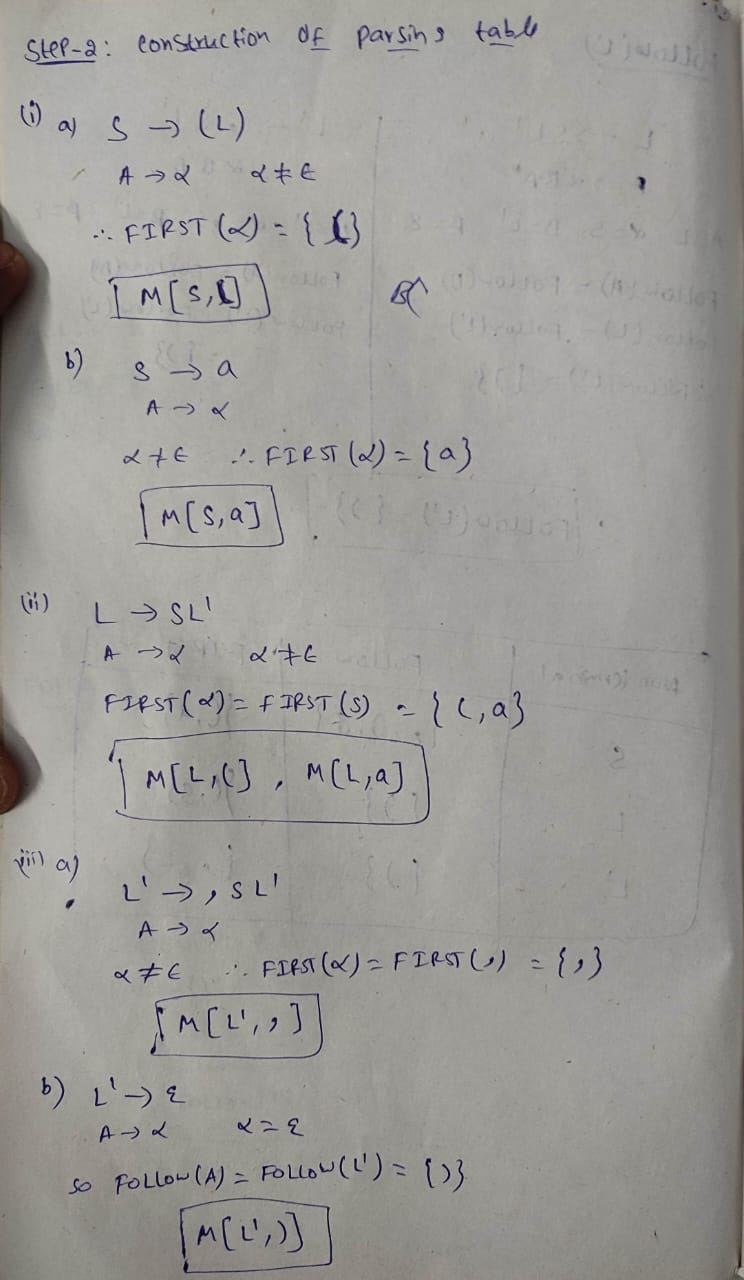 Step-2: construction of parsing table
(i) a) S → (L)
A → α α ≠ ε
∴ FIRST(α) = { ( }
M[S,(]
b) S → a
A → α
α ≠ ε ∴ FIRST(α) = {a}
M[S,a]
(ii) L → SL'
A → α α ≠ ε
FIRST(α) = FIRST(S) = { (, a}
M[L,(] , M[L,a]
(iii) a)
L' → , SL'
A → α
α ≠ ε ∴ FIRST(α) = FIRST(,) = {,}
M[L', ,]
b) L' → ε
A → α α = ε
so FOLLOW(A) = FOLLOW(L') = {)}
M[L',)]